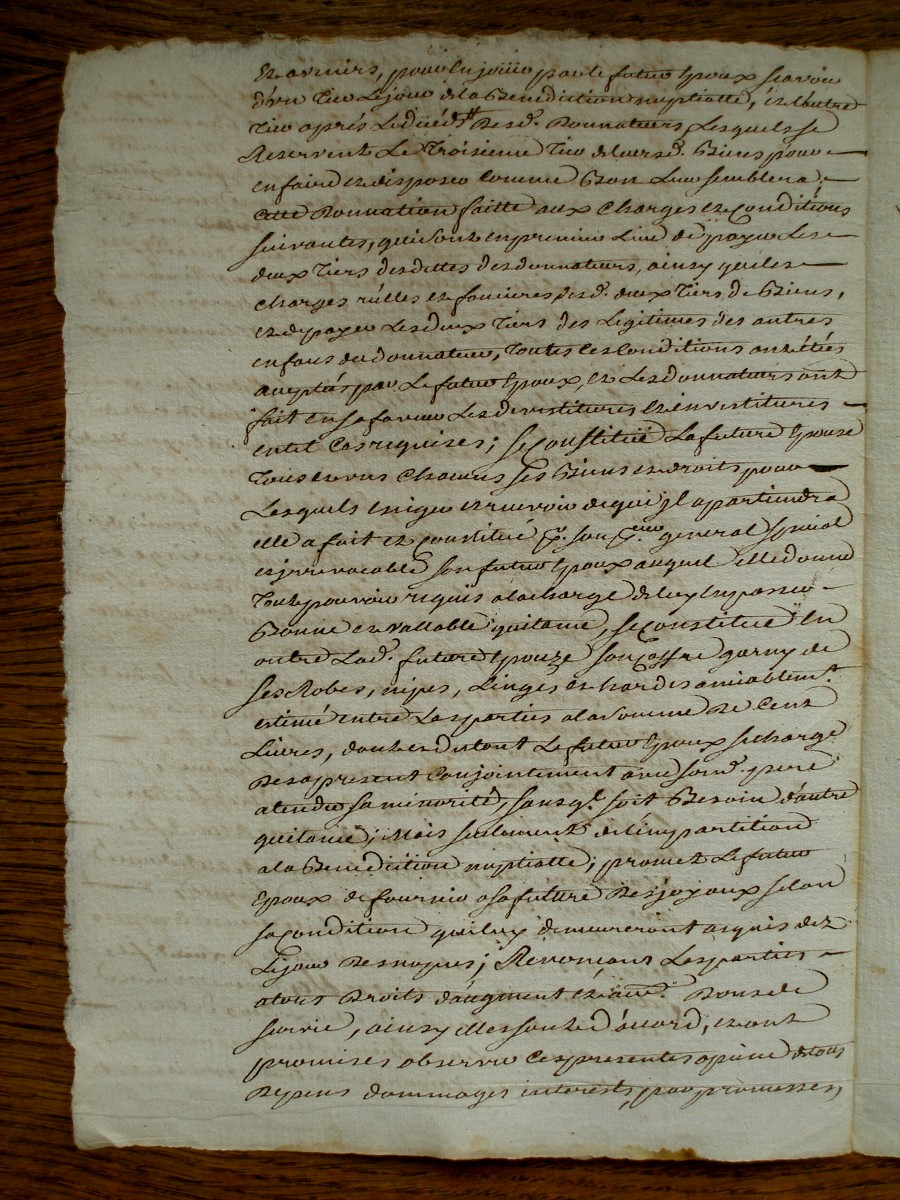 et avenirs, pour en jouir par le futur Epoux scavoir
d'un tier le jour de la Benediction nuptialle, et l'autre
tier après le décéd desd. Donnateurs lesquels se
Reservent Le Troisieme tier de leursd. Biens pour
en faire et disposer comme Bon Leur semblera,
cette Donnation faitte aux charges et conditions
suivantes, qui sont en premier Lieu de payer Les
deux tiers des dettes des donnateurs, ainsy que les
charges réelles et foncieres desd. deux tiers de Biens,
et de payer Les deux tiers des Legitimes des autres
enfans du donnateur, toutes lesConditions ont étés
acceptés par Le futur Epoux, et Les donnateurs ont
fait en sa faveur Les devestitures et investitures
en tel cas requises; se constitüe La future Epouse
tous et uns chacuns ses Biens et droits pour
Lesquels exiger et recevoir de qui jl apartiendra
elle a fait et constitué pr. son pr.eur general special
et jrrevocable son futur Epoux auquel elle donne
tout pouvoir requis a la charge de luy en passer
Bonne et vallable quitance, se constitüe en
outre Lad. future Epouze son coffre garny de
ses Robes, nipes, Linges et hardes amiablemt.
estimé entre Les parties a la somme de cent
Livres, dont et du tout Le futur Epoux se charge
des a present conjointement avec sond. pere
atendu sa minorité, sans ql. soit Besoin d'autre
quitance; Mais seulement de l'impartition
a la Benediction nuptialle; promet Le futur
Epoux de fournir a sa future des joyaux selon
sa condition qui luy demeureront acquis dez
Le jour des nopces; Renonçant Les parties
a tous droits d'augment et Bonde de
survie, ainsy elles sont d'acord, et ont
promises observer Ces presentes a peine de tous
depens dommages interests, par promesses,